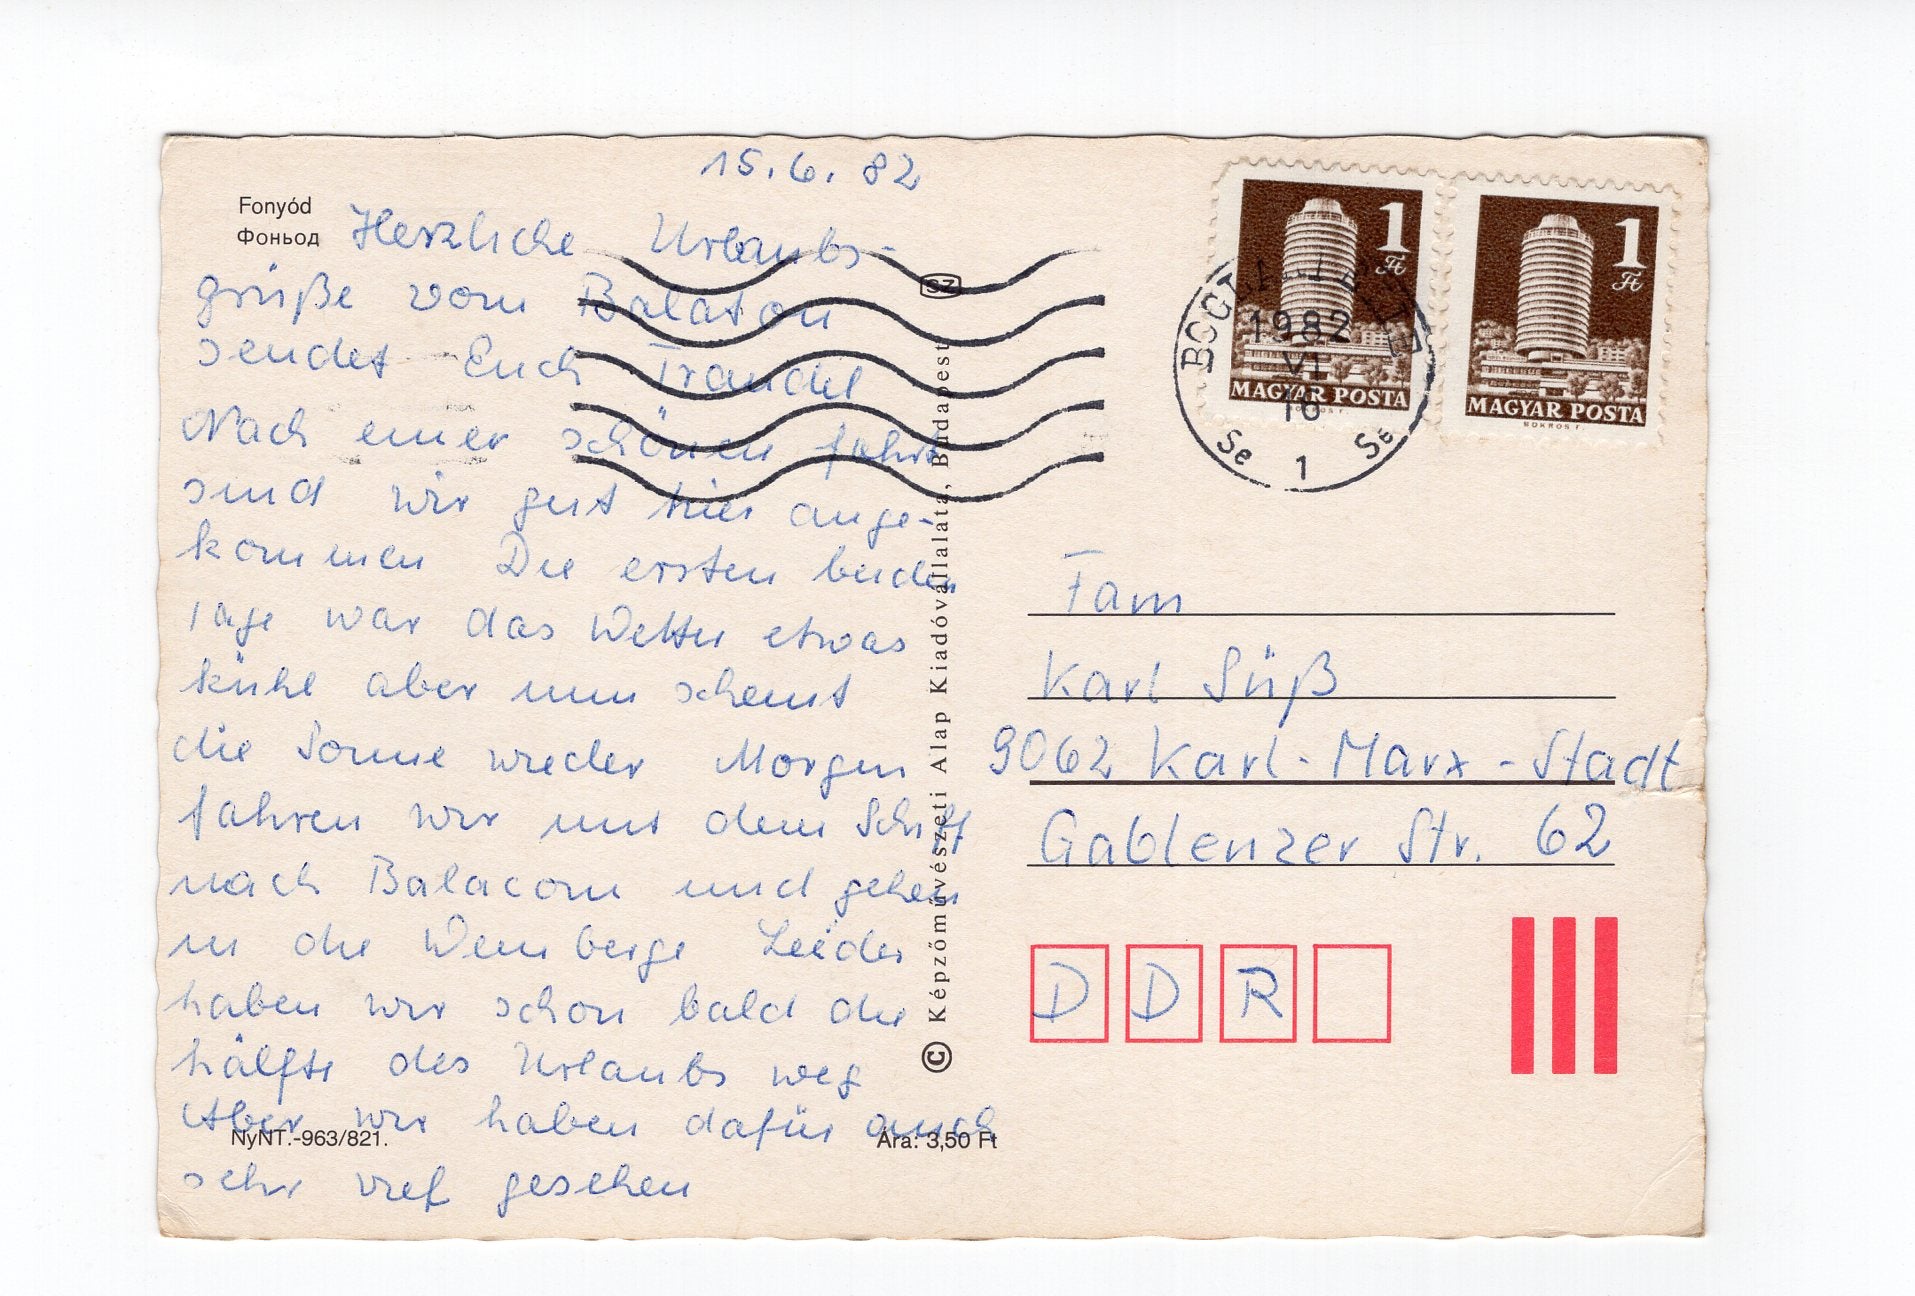 15.6.82
Fonyód
Фоньод
Herzliche Urlaubs-
grüße vom Balaton
sendet Euch Traudel
Nach einer schönen fahrt
sind wir gut hier ange-
kommen Die ersten beiden
Tage war das Wetter etwas
kühl aber nun scheint
die Sonne wieder Morgen
fahren wir mit dem Schiff
nach Balacon und gehen
in die Weinberge Leider
haben wir schon bald die
hälfte des Urlaubs weg
Aber wir haben dafür auch
sehr viel gesehen
NyNT.-963/821.
Ára: 3,50 Ft
© Képzőművészeti Alap Kiadóvállalata, Budapest
SZ
1 Ft
MAGYAR POSTA
1 Ft
MAGYAR POSTA
NOKROS F.
1982
VI
16
Se 1 Se
Fam
Karl Süß
9062 Karl-Marx-Stadt
Gablenzer Str. 62
DDR